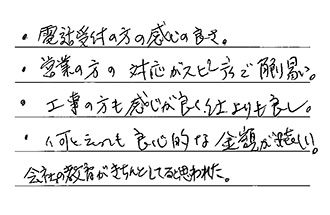 ・電話受付の方の感じの良さ。
・営業の方の対応がスピーディで解り易い。
・工事の方も感じが良く仕上りも良し。
・何と言っても良心的な金額が嬉しい!
会社の教育がきちんとしてると思われた。